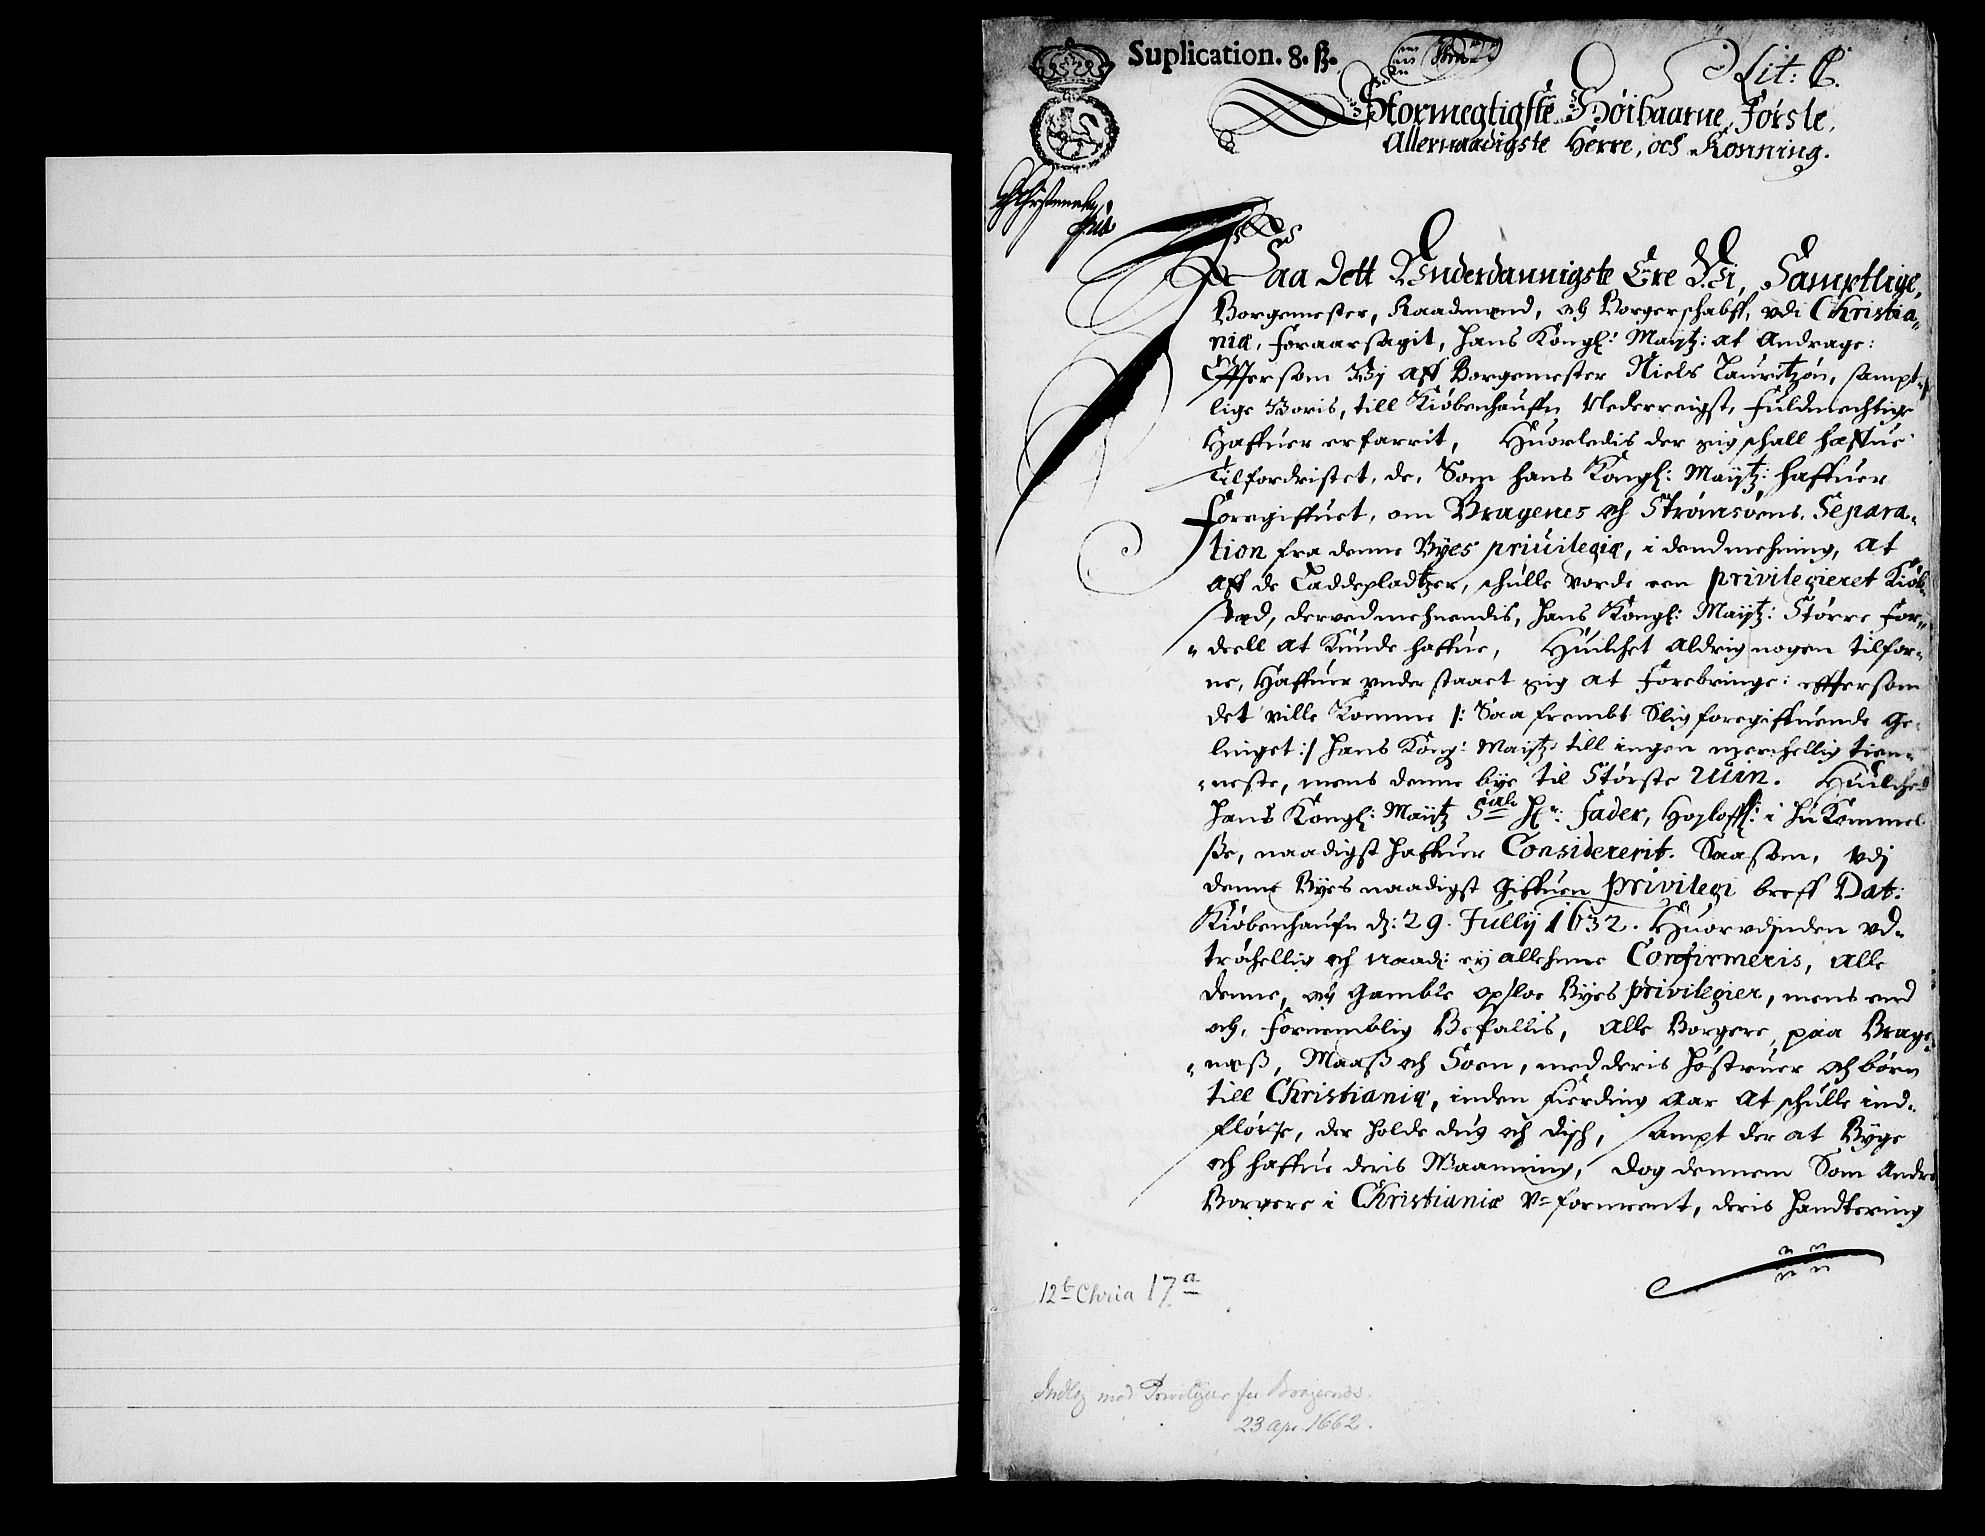 Suplication. 8. ß.
Lit: C.
Stormegtigste Høibaarne, Første,
Allernaadigste Herre, och Konning.
Paa dett Vnderdannigste Ere Wi, Samptlige,
Borgemester, Raadmend, och Borgerschabff, vdi Christia-
nia, foraarsagit, Hans Kongl: Maytz: at Andrage:
Effter som Wy aff Borgemester Niels Lauritzøn, sampt-
lige Woris, till Kiøbenhauffn Nederreigst, fuldmechtige
Haffuer erfarrit, Huorledis der sig schall haffue
Tilfordristet, de, Som hans Kongl: Maytz: haffuer
foregiffuet, om Bragenes och Strømsøens, Separa-
tion fra denne Byes priuilegia, i dend mehning, At
aff de Laddepladtzer, schulle vorde een privilegieret Kiøb-
stad, derved mehnendis, Hans Kongl: Maytz: Større for-
deell at Kunde haffue, Huilchet Aldrig nogen tilfor-
ne, Haffuer vnderstaaet sig at forebringe: efftersom
det ville Komme /: Saa frembt Slig foregiffuende Ge-
linget :/ Hans Kong: Maytz: till ingen merchellig tien-
neste, mens denne bye til Største ruin. Huilchet
Hans Kongl: Maytz Sal: Hr: Fader, Høylofl: i hukommel
ße, naadigst haffuer Considererit. Saasom, vdj
denne Byes naadigst Giffuen privilegi breff Dat:
Kiøbenhaufn d: 29. Jullij 1632. Huorvdjnden vd-
tröchellig och Naad: ey allehene Confirmeris, alle
denne, och Gamble opsloe Byes privilegier, mens end
och, fornemblig Befallis, alle Borgere, paa Brage-
næß, Maaß och Soen, med deris Høstruer och børn
till Christiania, inden fierding Aar At schulle ind-
fløtte, der holde dug och disch, sampt der at Byge
och haffue deris Waanning, dog dennem Som Andre
Borgere i Christiania V-forment, deris Handtering
12b Chria 17a
Indleg med Privilegier for Bragernes.
23 Apr. 1662.